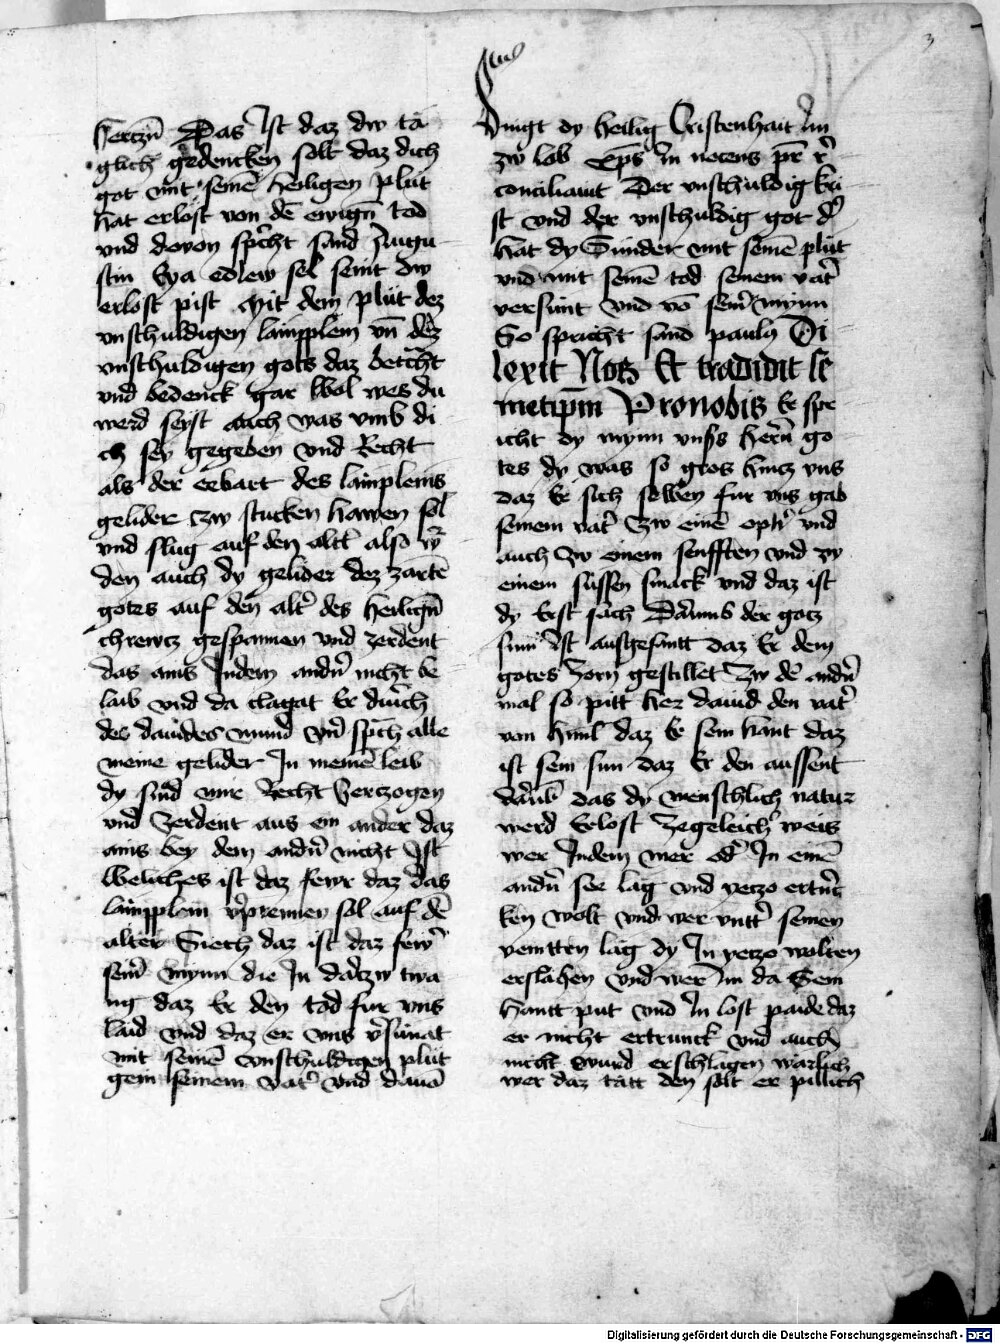 3
hertzn̄ Das Ist daz dw tä
glich gedencken solt daz dich
got mit seinē heiligen plüt
hat erlöst von dē ewign̄ tod
vnd dovon spricht sand Augu
stin Eya edlew sel seint dw
erlost pist Mit dem plüt dez
vnschuldigen lämpplein vn̄ dez
vnschuldigen gots daz betracht
vnd bedenck gar wol wes du
werd seyst auch was vmb di
ch sey gegeben vnd Recht
als der erbart des lämpleins
gelider zw stucken hawen sol
vnd slug auf den altt̄ also wr̄
den auch dy gelider dez zartē
gotes auf den alt̄ des heilign̄
chrewcz gespannen vnd zerdent
das ains Indem andn̄ nicht be
laib vnd da clagat Er durch
des dauides mund vn̄ sp̄ch alle
meine gelider In meinē leib
dy sind mir Recht verczogen
vnd zerdent aus ein ander daz
ains bey dem andn̄ nicht Ist
Welliches ist daz fewr daz das
lämpplein v̄prennen sol auf dē
alter Siech daz ist daz few̄
sein̄ mynn die In darzw twa
ng daz Er den tod fur vns
laid vnd daz er vns v̄sünat
mit seinē vnschuldigen plüt
gein seinem vat̄ vnd dauā
singt dy heilig Cristenhait Im
zw lob Xp̄s In nocens pr̄ r̄
conciliauit Der vnschuldig kri
st vnd der vnschuldig got d̄
hat dy Sunder mit seinē plüt
vnd mit seinē tod seinem vat̄
versünt vnd vō sein̄ mynn
So spricht sand paulus Di
lexit Nos Et tradidit se
metip̄m Pro nobis Er spr
icht dy mynn vnsz hern̄ go
tes dy was so gros hincz vns
daz Er sich selben fur vns gab
seinem vat̄ Zw einē oph̄ vnd
auch zw einem senfften vnd zw
einem süssen smack vnd daz ist
dy Erst sach Darumb der gotz
sun Ist ausgesantt daz Er dem
gotes zorn gestillet Zw dē andn̄
mal so pitt her dauid den vat̄
von himl daz Er sein hant daz
ist sein sun daz Er den aussent
dar̄ub das dy menschlich natur
werd Erlost Zegeleich̄ weis
wer Indem mer od̄ In einē
andn̄ see lag vnd yeczo ertri̅
ken wolt vnd wer vntt̄ seinen
veintten lag dy In yeczo wolten
erslahen vnd wer Im da Sein
hantt put vnd In lost paide daz
er nicht ertrunck vnd auch
nicht wurd erschlagen warlich
wer daz tätt den solt er pillich
Digitalisierung gefördert durch die Deutsche Forschungsgemeinschaft - DFG